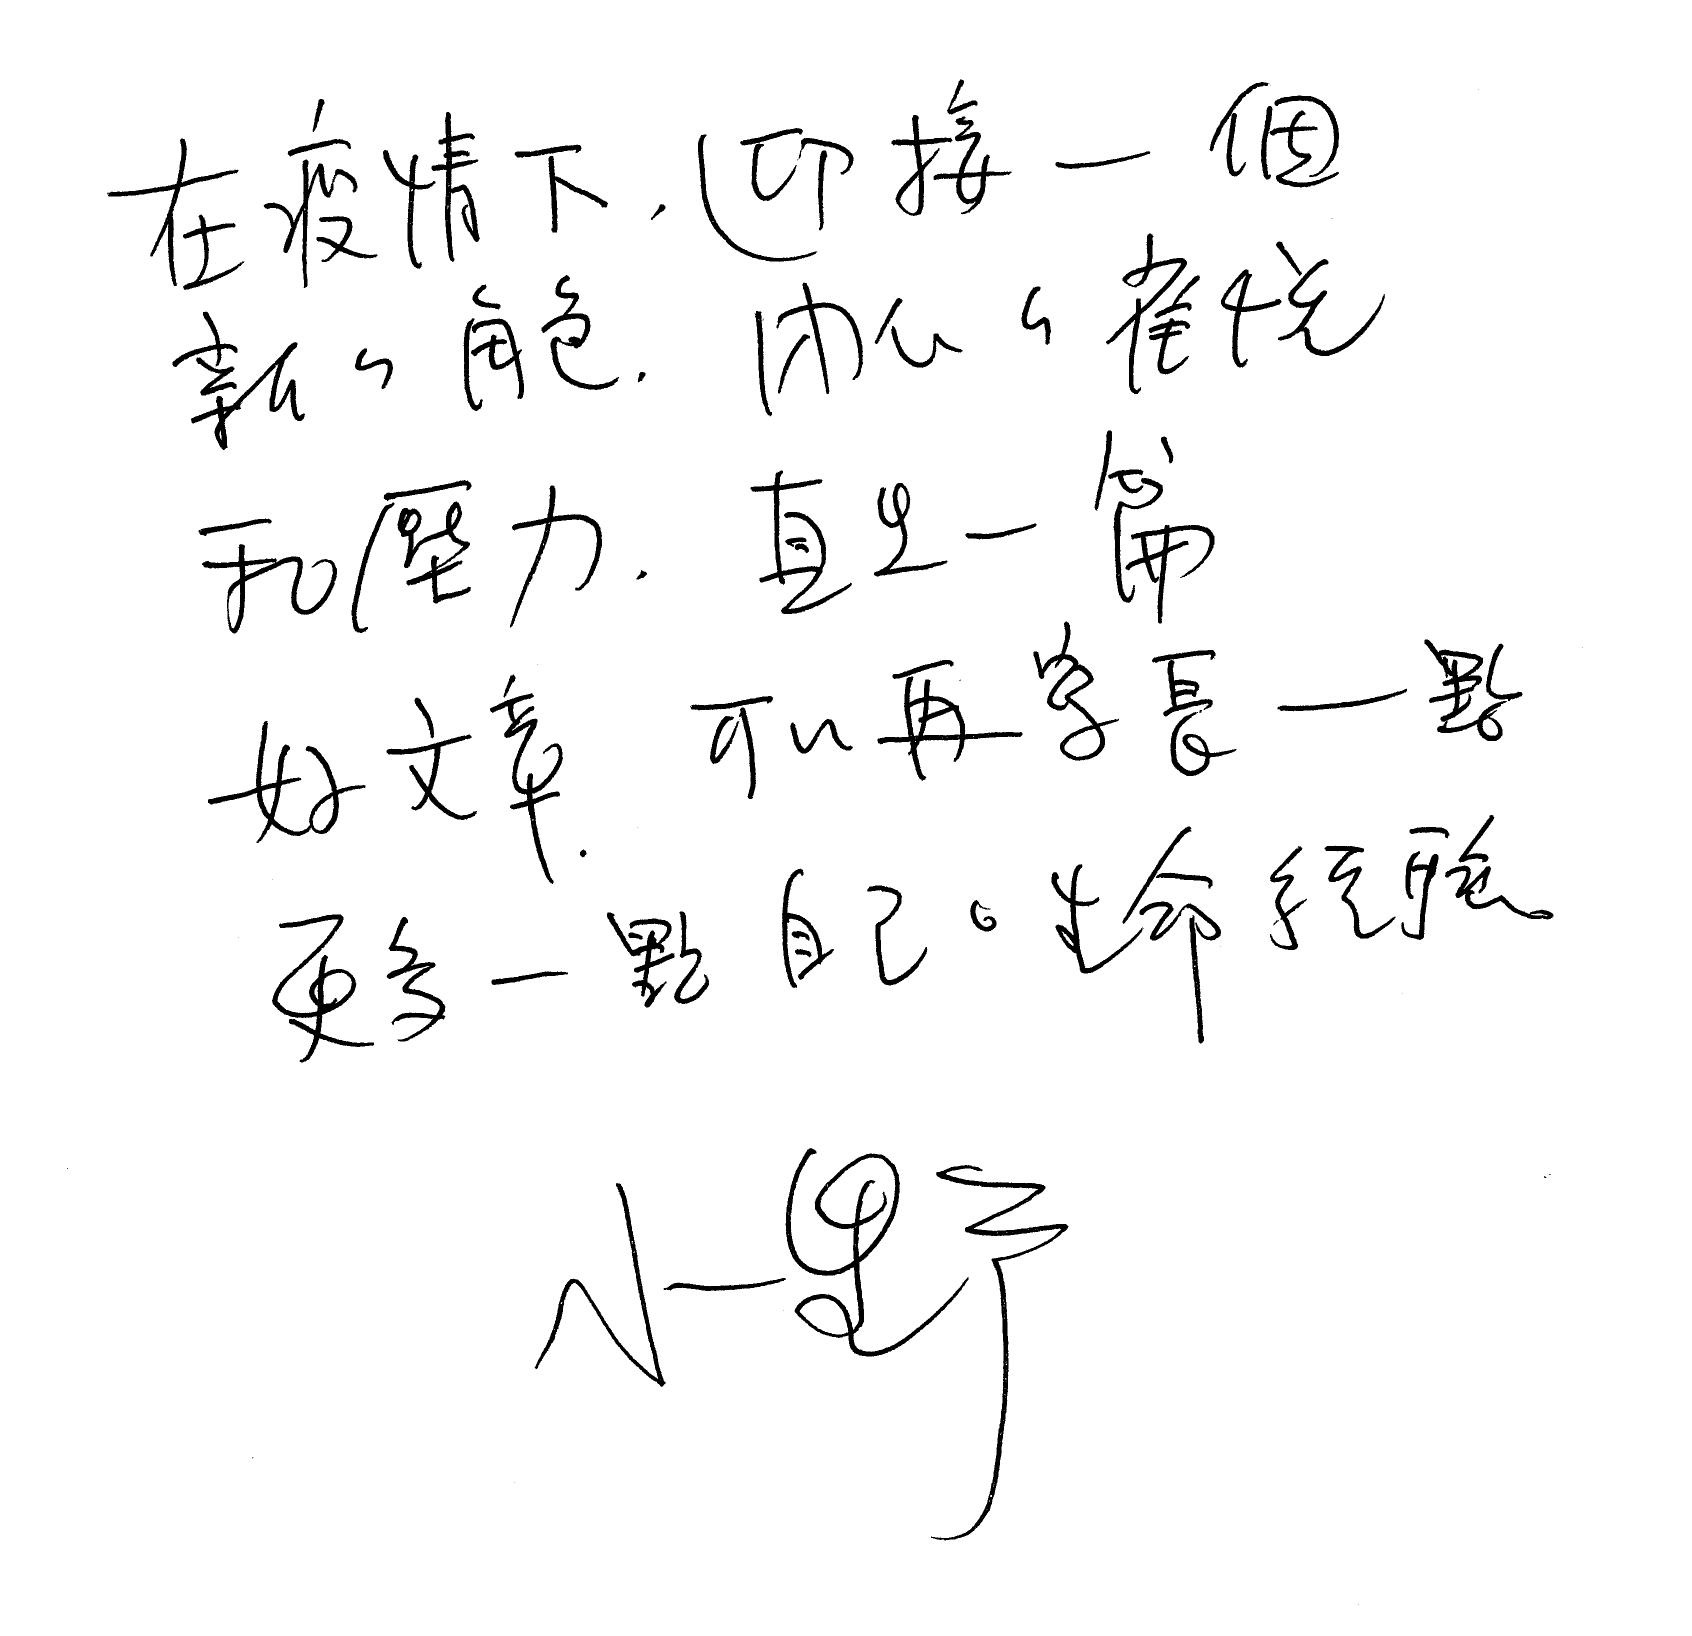 在疫情下.迎接一個
新的角色.內心的雀悦
和壓力.真是一篇
好文章.可以再寫長一點
更多一點自己的生命經驗
小野